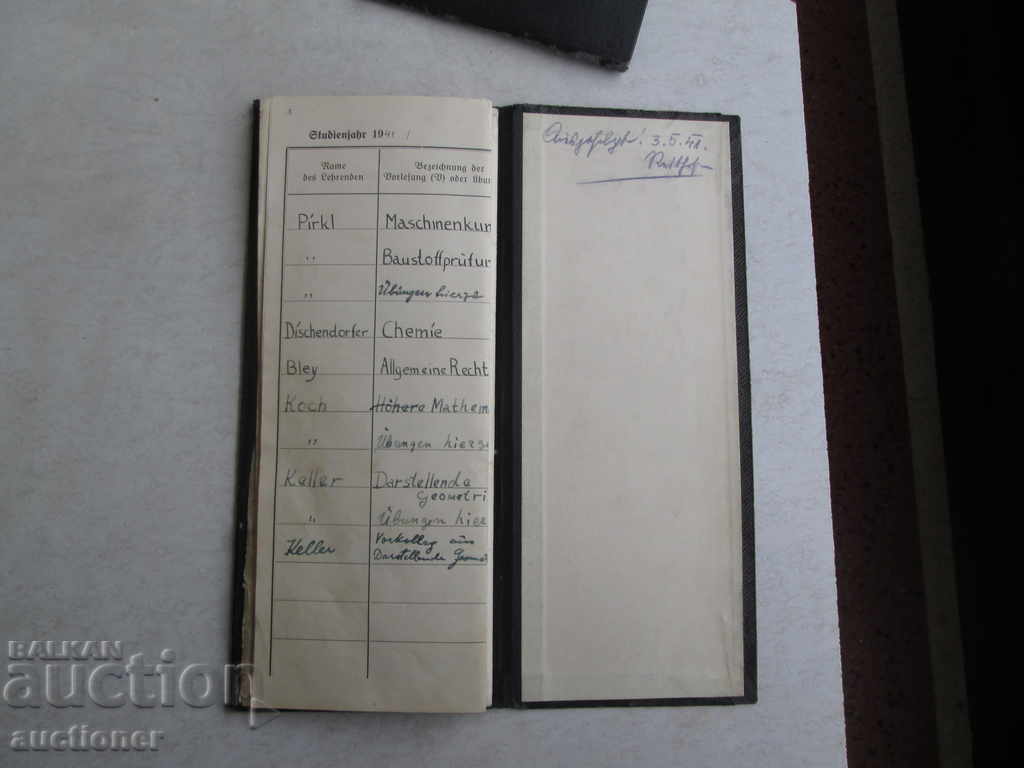 Studienjahr 1941 /
Name
des Lehrenden
Bezeichnung der
Vorlesung (V) oder Übun
Pirkl Maschinenkun
" Baustoffprüfun
" Übungen hierzu
Dischendorfer Chemie
Bley Allgemeine Recht
Koch Höhere Mathem
" Übungen hierzu
Keller Darstellende
Geometri
" Übungen hier
Keller Vorkolleg aus
Darstellende Geome
3. 5. 41.
BALKAN
auction
auctioner